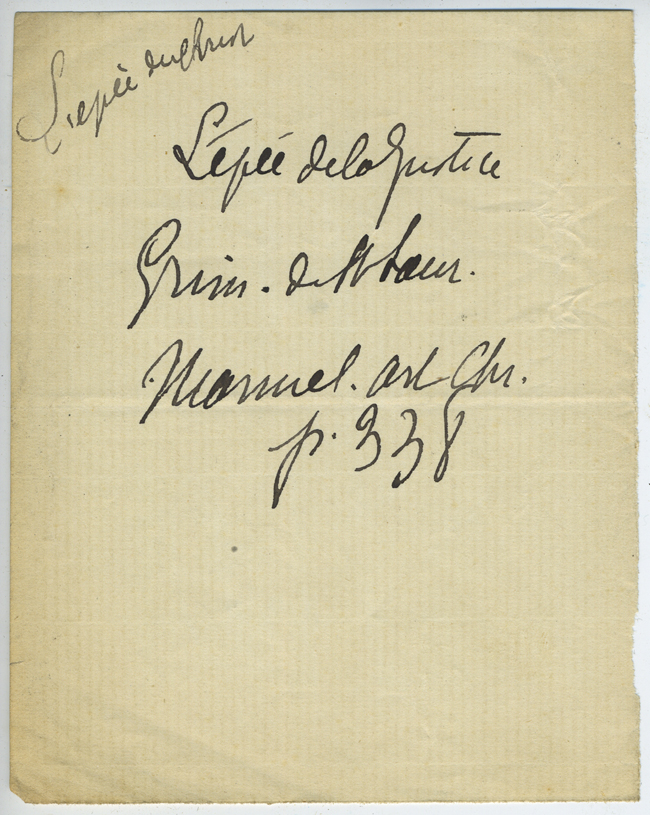 L'épée du Christ
L'épée de la Justice
Grim. de St Laur.
Manuel. art Chr.
p. 338